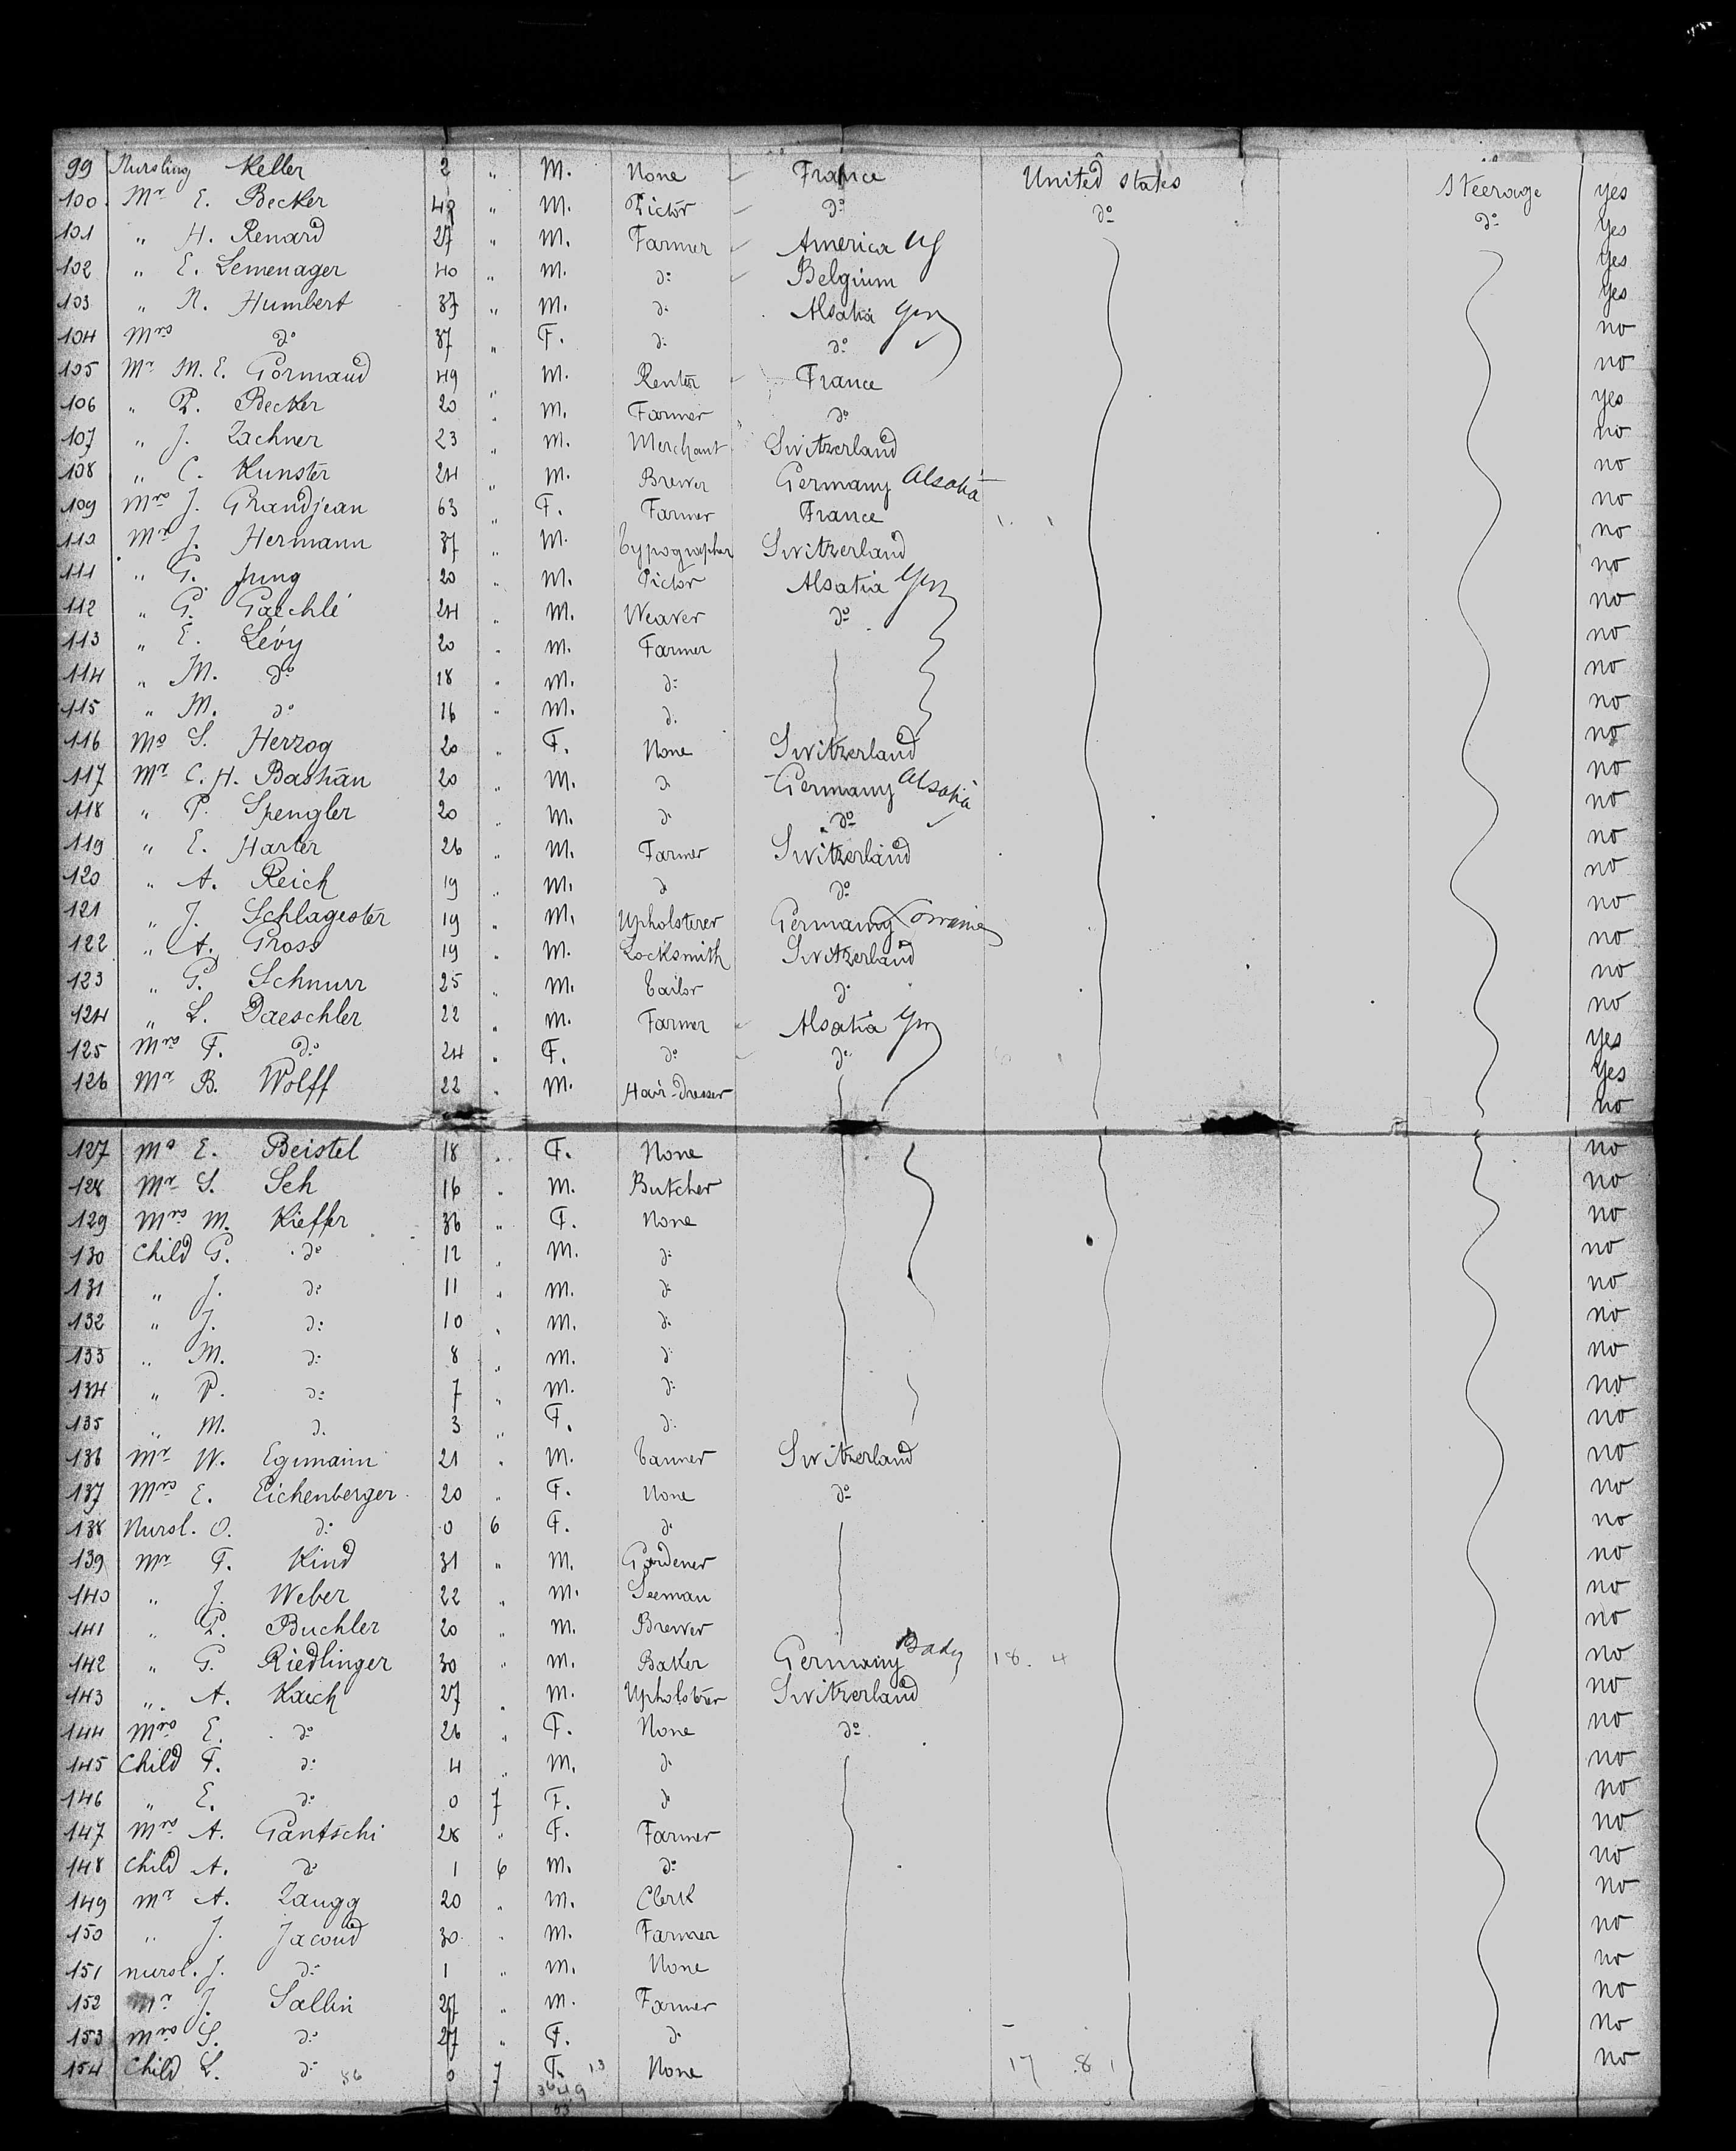 99 Nursling Keller 2 " M. None France United States Steerage yes
100 Mr E. Becker " M. Pictor do do do Yes
101 " H. Renard 27 " M. Farmer America US Yes
102 " E. Lemenager 40 " M. do Belgium Yes
103 " N. Humbert 37 " M. do Alsatia Ger no
104 Mrs do 37 " F. do do no
105 Mr M. E. Gormand 49 " M. Rentor France yes
106 " P. Becker 20 " M. Farmer do no
107 " J. Zachner 23 " M. Merchant Switzerland no
108 " C. Kunster 24 " M. Brewer Germany Alsatia no
109 Mrs J. Grandjean 63 " F. Farmer France no
110 Mr J. Hermann 37 " M. Typographer Switzerland no
111 " G. Jung 20 " M. Pictor Alsatia Ger no
112 " G. Gaechlé 24 " M. Weaver do no
113 " E. Lévy 20 " M. Farmer no
114 " M. do 18 " M. do no
115 " M. do 16 " M. do no
116 Ma S. Herzog 20 " F. None Switzerland no
117 Mr C. H. Bastian 20 " M. do Germany Alsatia no
118 " P. Spengler 20 " M. do do no
119 " E. Harter 26 " M. Farmer Switzerland no
120 " A. Reich 19 " M. do do no
121 " J. Schlagester 19 " M. Upholsterer Germany Lorraine no
122 " A. Gross 19 " M. Locksmith Switzerland no
123 " G. Schnurr 25 " M. Tailor do no
124 " L. Daeschler 22 " M. Farmer Alsatia Ger yes
125 Mrs F. do 24 " F. do do Yes
126 Mr B. Wolff 22 " M. Hair-Dresser no
127 Ma E. Beistel 18 " F. None no
128 Mr S. Seh 16 " M. Butcher no
129 Mrs M. Kieffer 36 " F. None no
130 Child G. do 12 " M. do no
131 " J. do 11 " M. do no
132 " J. do 10 " M. do no
133 " M. do 8 " M. do no
134 " P. do 7 " M. do no
135 " M. do 3 " F. do no
136 Mr W. Egimann 21 " M. Tanner Switzerland no
137 Mrs E. Eichenberger 20 " F. None do no
138 Nursl. O. do 0 6 F. do no
139 Mr F. Kind 31 " M. Gardener no
140 " J. Weber 22 " M. Seeman no
141 " R. Buchler 20 " M. Brewer no
142 " G. Riedlinger 30 " M. Baker Germany Baden 18. 4 no
143 " A. Kaich 27 " M. Upholsterer Switzerland no
144 Mrs E. do 26 " F. None do no
145 Child F. do 4 " M. do no
146 " E. do 0 7 F. do no
147 Mrs A. Gantschi 28 " F. Farmer no
148 Child A. do 1 6 M. do no
149 Mr A. Zaugg 20 " M. Clerk no
150 " J. Jacoud 30 " M. Farmer no
151 nursl. J. do 1 " M. None no
152 Mr J. Sallin 27 " M. Farmer no
153 Mrs S. do 27 " F. do no
154 Child L. do 0 7 F. 13 None 17 8 1 no